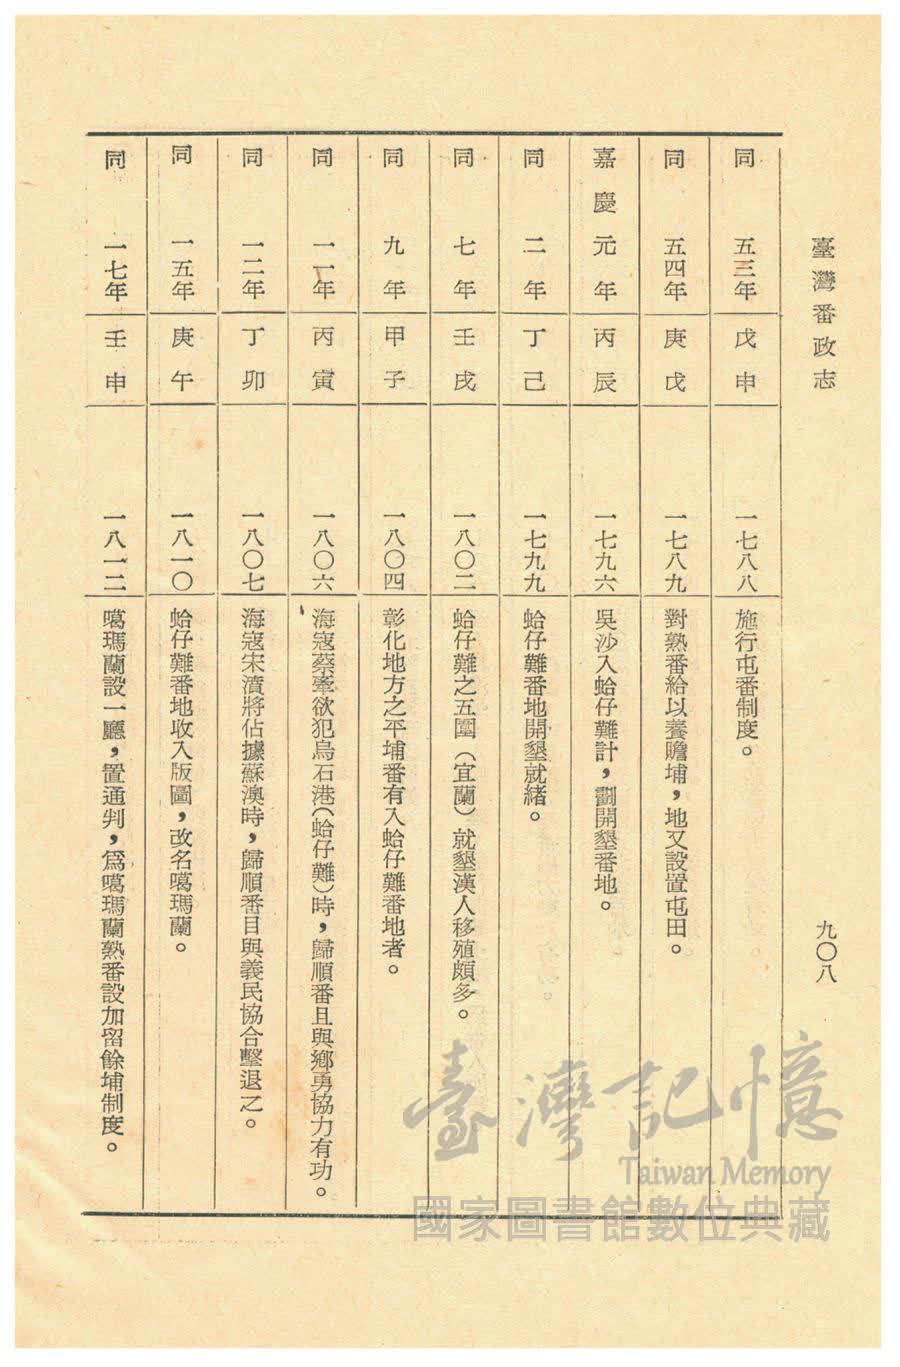 臺灣番政志
九〇八
同 五三年 戊申 一七八八 施行屯番制度。
同 五四年 庚戊 一七八九 對熟番給以養贍埔，地又設置屯田。
嘉慶元年 丙辰 一七九六 吳沙入蛤仔難計，劃開墾番地。
同 二年 丁己 一七九九 蛤仔難番地開墾就緒。
同 七年 壬戌 一八〇二 蛤仔難之五圍（宜蘭）就墾漢人移殖頗多。
同 九年 甲子 一八〇四 彰化地方之平埔番有入蛤仔難番地者。
同 一一年 丙寅 一八〇六 海寇蔡牽欲犯烏石港（蛤仔難）時，歸順番且與鄉勇協力有功。
同 一二年 丁卯 一八〇七 海寇朱濆將佔據蘇澳時，歸順番目與義民協合擊退之。
同 一五年 庚午 一八一〇 蛤仔難番地收入版圖，改名噶瑪蘭。
同 一七年 壬申 一八一二 噶瑪蘭設一廳，置通判，爲噶瑪蘭熟番設加留餘埔制度。
臺灣記憶
Taiwan Memory
國家圖書館數位典藏